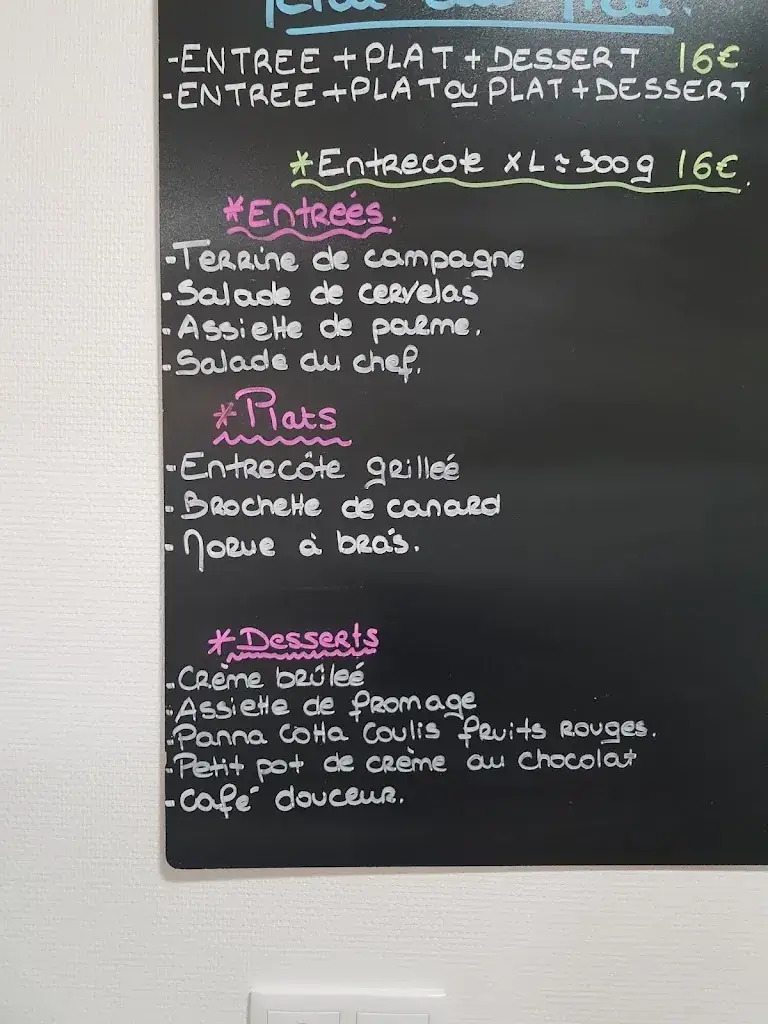 -ENTREE + PLAT + DESSERT 16€
-ENTREE + PLAT OU PLAT + DESSERT
*Entrecote XL ≈ 300g 16€.
*Entreés.
-Terrine de campagne
-Salade de cervelas
-Assiette de parme.
-Salade du chef.
*Plats
-Entrecôte grilleé
-Brochette de canard
-Morue à bras.
*Desserts
-Crème brûleé
-Assiette de fromage
-Panna Cotta Coulis fruits rouges.
-Petit pot de crème au chocolat
-Café douceur.